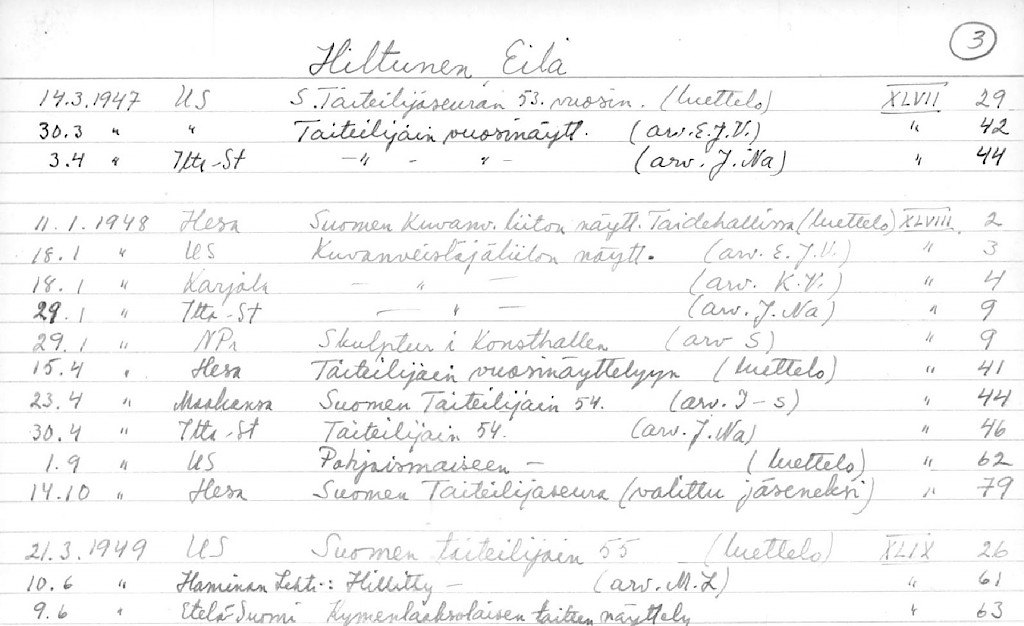 3
Hiltunen, Eila
14.3.1947 US S. Taiteilijaseuran 53. vuosin. (luettelo) XLVII 29
30.3 " " Taiteilijain vuosinäytt. (arv. E.J.V.) " 42
3.4 " Ilta-St —"— "— (arv. J. Na) " 44
11.1.1948 Hesa Suomen Kuvanv. liiton näytt. Taidehallissa (luettelo) XLVIII 2
18.1 " US Kuvanveistäjäliiton näytt. (arv. E.J.V.) " 3
18.1 " Karjala — " — (arv. K.V.) " 4
29.1 " Ilta-St — " — (arv. J. Na) " 9
29.1 " NPr Skulptur i Konsthallen (arv S) " 9
15.4 " Hesa Taiteilijain vuosinäyttelyyn (luettelo) " 41
23.4 " Maakansa Suomen Taiteilijain 54. (arv. I-s) " 44
30.4 " Ilta-St Taiteilijain 54. (arv. J. Na) " 46
1.9 " US Pohjoismaiseen — (luettelo) " 62
14.10 " Hesa Suomen Taiteilijaseura (valittu jäseneksi) " 79
21.3.1949 US Suomen taiteilijain 55 (luettelo) XLIX 26
10.6 " Haminan Lehti: Hillitty — (arv. M.L) " 61
9.6 " Etelä-Suomi Kymenlaaksolaisen taiteen näyttely " 63